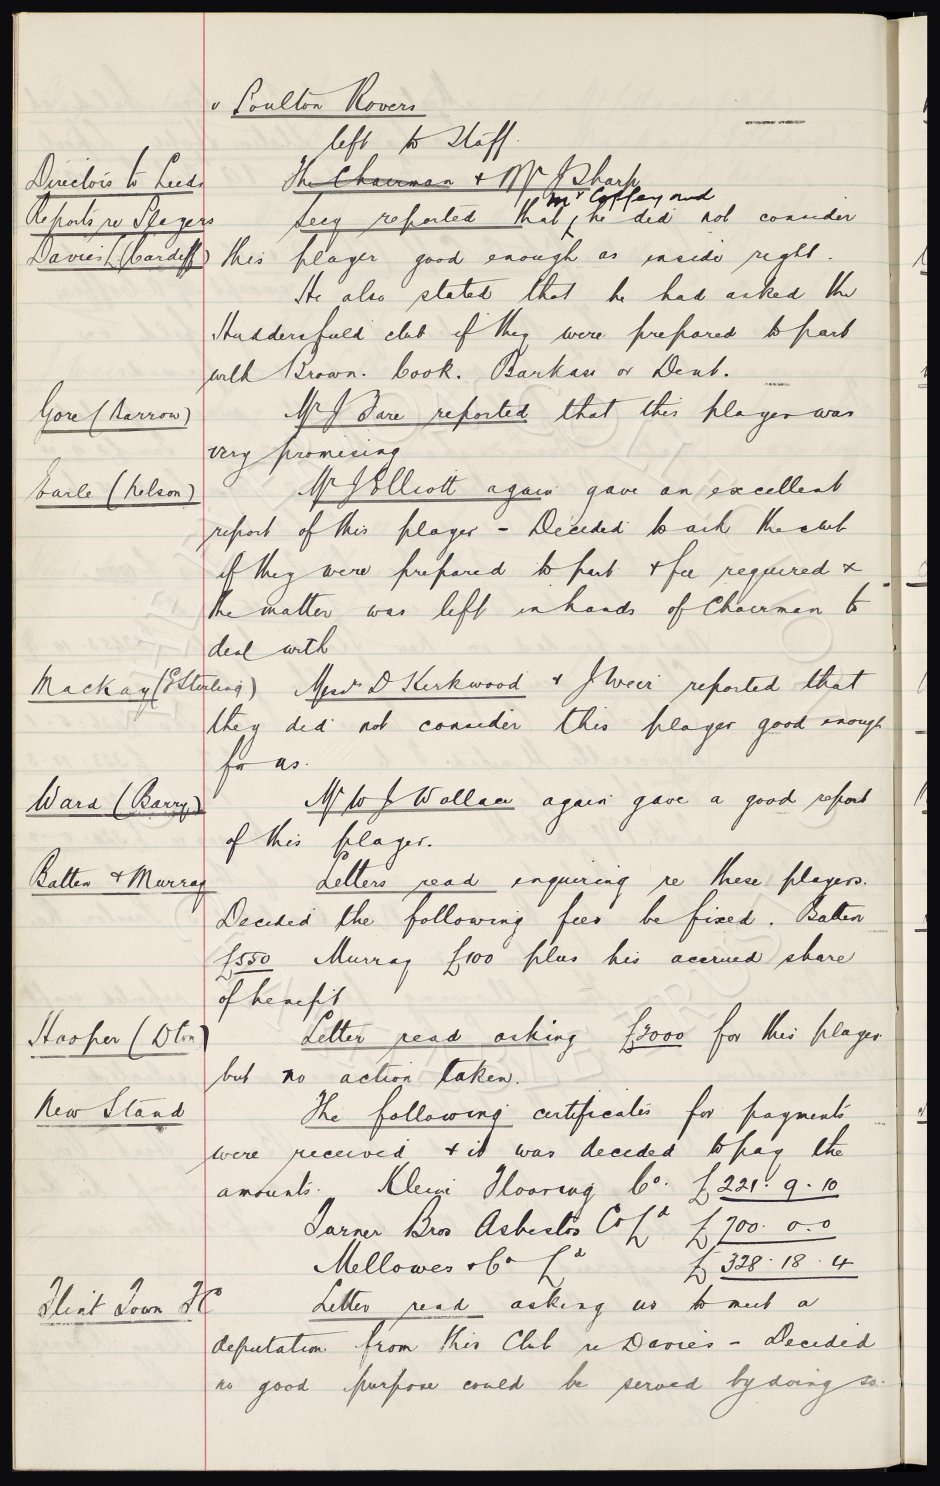 v Poulton Rovers
left to Staff.
Directors to Leeds The Chairman + Mr J Sharp
Mr Coffey and
Reports re Players Secy reported that he did not consider
Davies L (Cardiff) this player good enough as inside right.
He also stated that he had asked the
Huddersfield club if they were prepared to part
with Brown. Cook. Barkas or Dent.
Gore (Barrow) Mr J Fare reported that this player was
very promising
Earle (Nelson) Mr J Elliott again gave an excellent
report of this player - Decided to ask the club
if they were prepared to part + fee required +
the matter was left in hands of Chairman to
deal with
Mackay (E Sterling) Messrs D Kirkwood + J Weir reported that
they did not consider this player good enough
for us.
Ward (Barry) Mr W J Wallace again gave a good report
of this player.
Batten + Murray Letters read enquiring re these players.
Decided the following fees be fixed. Batten
£550 Murray £100 plus his accrued share
of benefit
Hooper (Dton) Letter read asking £2000 for this player
but no action taken.
New Stand The following certificates for payments
were received + it was decided to pay the
amounts. Kleine Flooring Co. £221. 9. 10
Turner Bros Asbestos Co Ld £700. 0. 0
Mellowes + Co Ld £328. 18. 4
Flint Town FC Letter read asking us to meet a
deputation from this Club re Davies - Decided
no good purpose could be served by doing so.